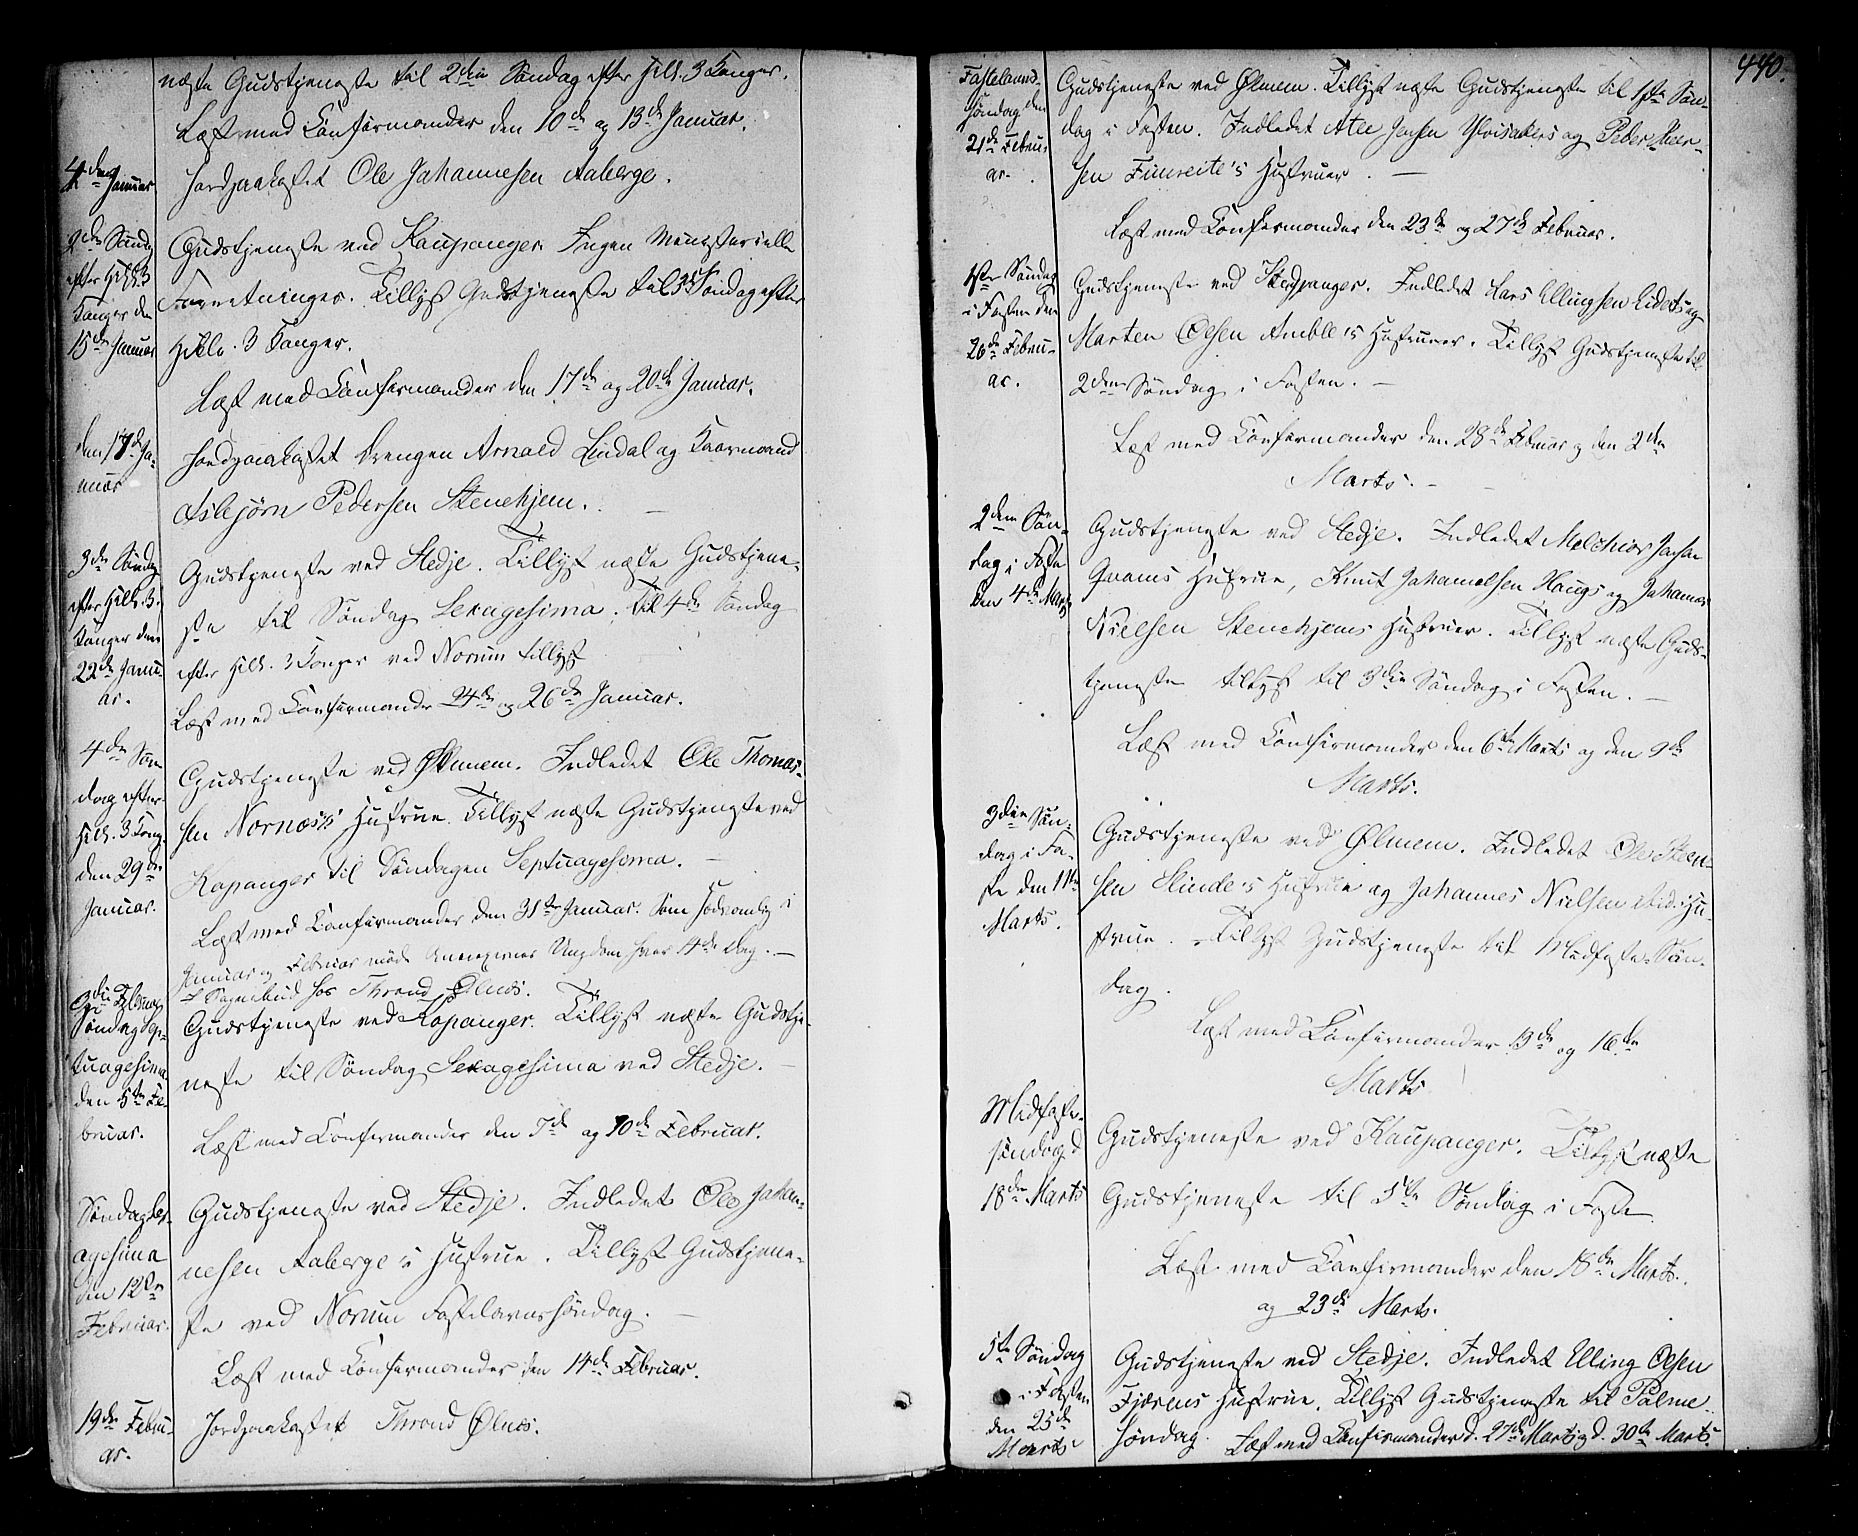 næste Gudstjeneste til 2den Søndag efter Hell. 3 Konger.
Læst med Confirmander den 10de og 13de Januar.
4de Januar
Jordpaakastet Ole Johannesen Aaberge.
2den Søndag
efter Hell. 3
Konger den
15de Januar
Gudstjeneste ved Kaupanger Ingen Ministerielle
Forretninger. Tillyst Gudstjeneste til 3die Søndag efter
Hellig 3 Konger.
Læst med Confirmander den 17de og 20de Januar.
den 17de Ja-
nuar
Jordpaakastet Drengen Arnold Lindal og Kaarmand
Asbjörn Pedersen Stenehjem.
3die Søndag
efter Hell. 3
Konger den
22de Janu-
ar.
Gudstjeneste ved Stedje. Tillyst næste Gudstjene-
ste til Søndag Sexagesima. Til 4de Søndag
efter Hell. 3 Konger ved Norum tillyst
Læst med Confirmander 24de og 26de Januar.
4de Søn
dag efter
Hell. 3 Kong.
den 29de
Januar.
Gudstjeneste ved Ølmem. Indledet Ole Thomas-
sen Nornæs's Hustrue. Tillyst næste Gudstjeneste ved
Kopanger til Søndagen Septuagesoma.
Læst med Confirmander den 31te Januar. Som sædvanlig i
Januar og Februar møde Annexernes Ungdom hver 14de Dag.
i Sognebud hos Thrond Ølnæs.
3die Februar
Søndag Sep-
tuagesima
den 5te Fe-
bruar.
Gudstjeneste ved Kopanger. Tillyst næste Gudstje-
neste til Søndag Sexagesima ved Stedje.
Læst med Confirmander den 7de og 10de Februar.
Søndag Sex-
agesima
den 12te
Februar.
Gudstjeneste ved Stedje. Indledet Ole Johan-
nesen Aaberge's Hustrue. Tillyst Gudstjene-
ste ved Norum Fastelavnssøndag.
Læst med Confirmander den 14de Februar.
19de Febru-
ar.
Jordpaakastet Thrond Ølnæs.
440.
Fastelavns-
søndag den
21de Febru-
ar.
Gudstjeneste ved Ølmem. Tillyst næste Gudstjeneste til 1ste Søn-
dag i Fasten. Indledet Atle Jensen Ylvisakers og Peder Iver-
sen Fimreite's Hustruer.
Læst med Confirmander den 23de og 27de Februar.
1ste Søndag
i Fasten den
26de Febru-
ar.
Gudstjeneste ved Kaupanger. Indledet Lars Ellingsen Eidets og
Marten Olsen Amble's Hustruer. Tillyst Gudstjeneste til
2den Søndag i Fasten.
Læst med Confirmander den 28de Februar og den 2den
Marts.
2den Søn-
dag i Faste
den 4de Marts
Gudstjeneste ved Stedje. Indledet Melchior Jensen
Qvams Hustrue, Knut Johannessen Haugs og Johannes
Nielsen Stenehjems Hustruer. Tillyst næste Guds-
tjeneste tillyst til 3die Søndag i Fasten.
Læst med Confirmander den 6te Marts og den 9de
Marts.
3die Søn-
dag i Fa-
ste den 11te
Marts.
Gudstjeneste ved Ølmem. Indledet Ole Steen-
sen Slinde's Hustrue og Johannes Nielsen Hu-
strue. Tillyst Gudstjeneste til Midfaste-Søn-
dag.
Læst med Confirmander 13de og 16de
Marts
Midfaste-
søndag d
18de Marts
Gudstjeneste ved Kaupanger. Tillyst næste
Gudstjeneste til 5te Søndag i Faste
Læst med Confirmander den 18de Marts.
og 23de Marts.
5te Søndag
i Fasten
den 25de
Marts
Gudstjeneste ved Stedje. Indledet Elling Olsen
Fjærens Hustrue. Tillyst Gudstjeneste til Palme
Søndag. Læst med Confirmander d. 27de Marts og d. 30te Marts.